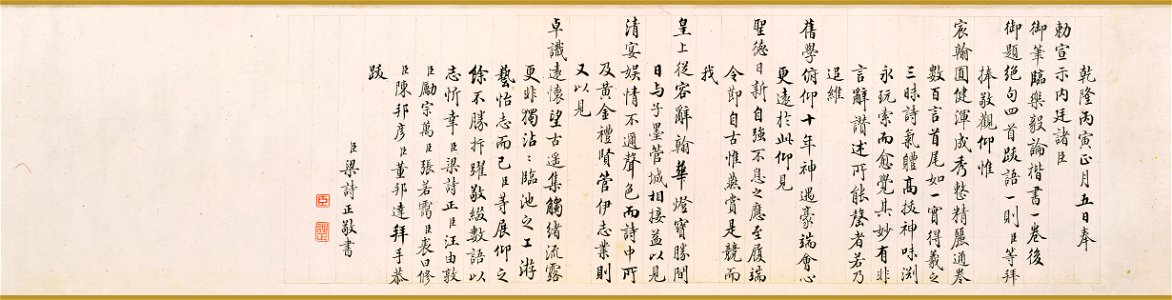 乾隆丙寅正月五日奉
勅宣示内廷諸臣
御筆臨樂毅論楷書一卷後
御題絕句四首跋語一則臣等拜
捧敬觀仰惟
宸翰圓健渾成秀整精麗通卷
數百言首尾如一實得羲之
三昧詩氣體高技神味淵
永玩索而愈覺其妙有非
言辭讚述所能罄者若乃
追維
舊學俯仰十年神遇豪端會心
更遠於此仰見
聖德日新自強不息之應至履端
令節自古惟燕賞是競而
我
皇上從容辭翰華燈寶勝間
日與子墨管城相接益以見
清宴娛情不邇聲色而詩中所
及黃金禮賢管伊志業則
又以見
卓識遠懷望古遙集觸緒流露
更非獨沾沾臨池之工游
藝怡志而已臣等展仰之
餘不勝抃躍敬綴數語以
志忻幸臣梁詩正臣汪由敦
臣勵宗萬臣張若靄臣裘曰修
臣陳邦彥臣董邦達拜手恭
跋
臣梁詩正敬書
臣